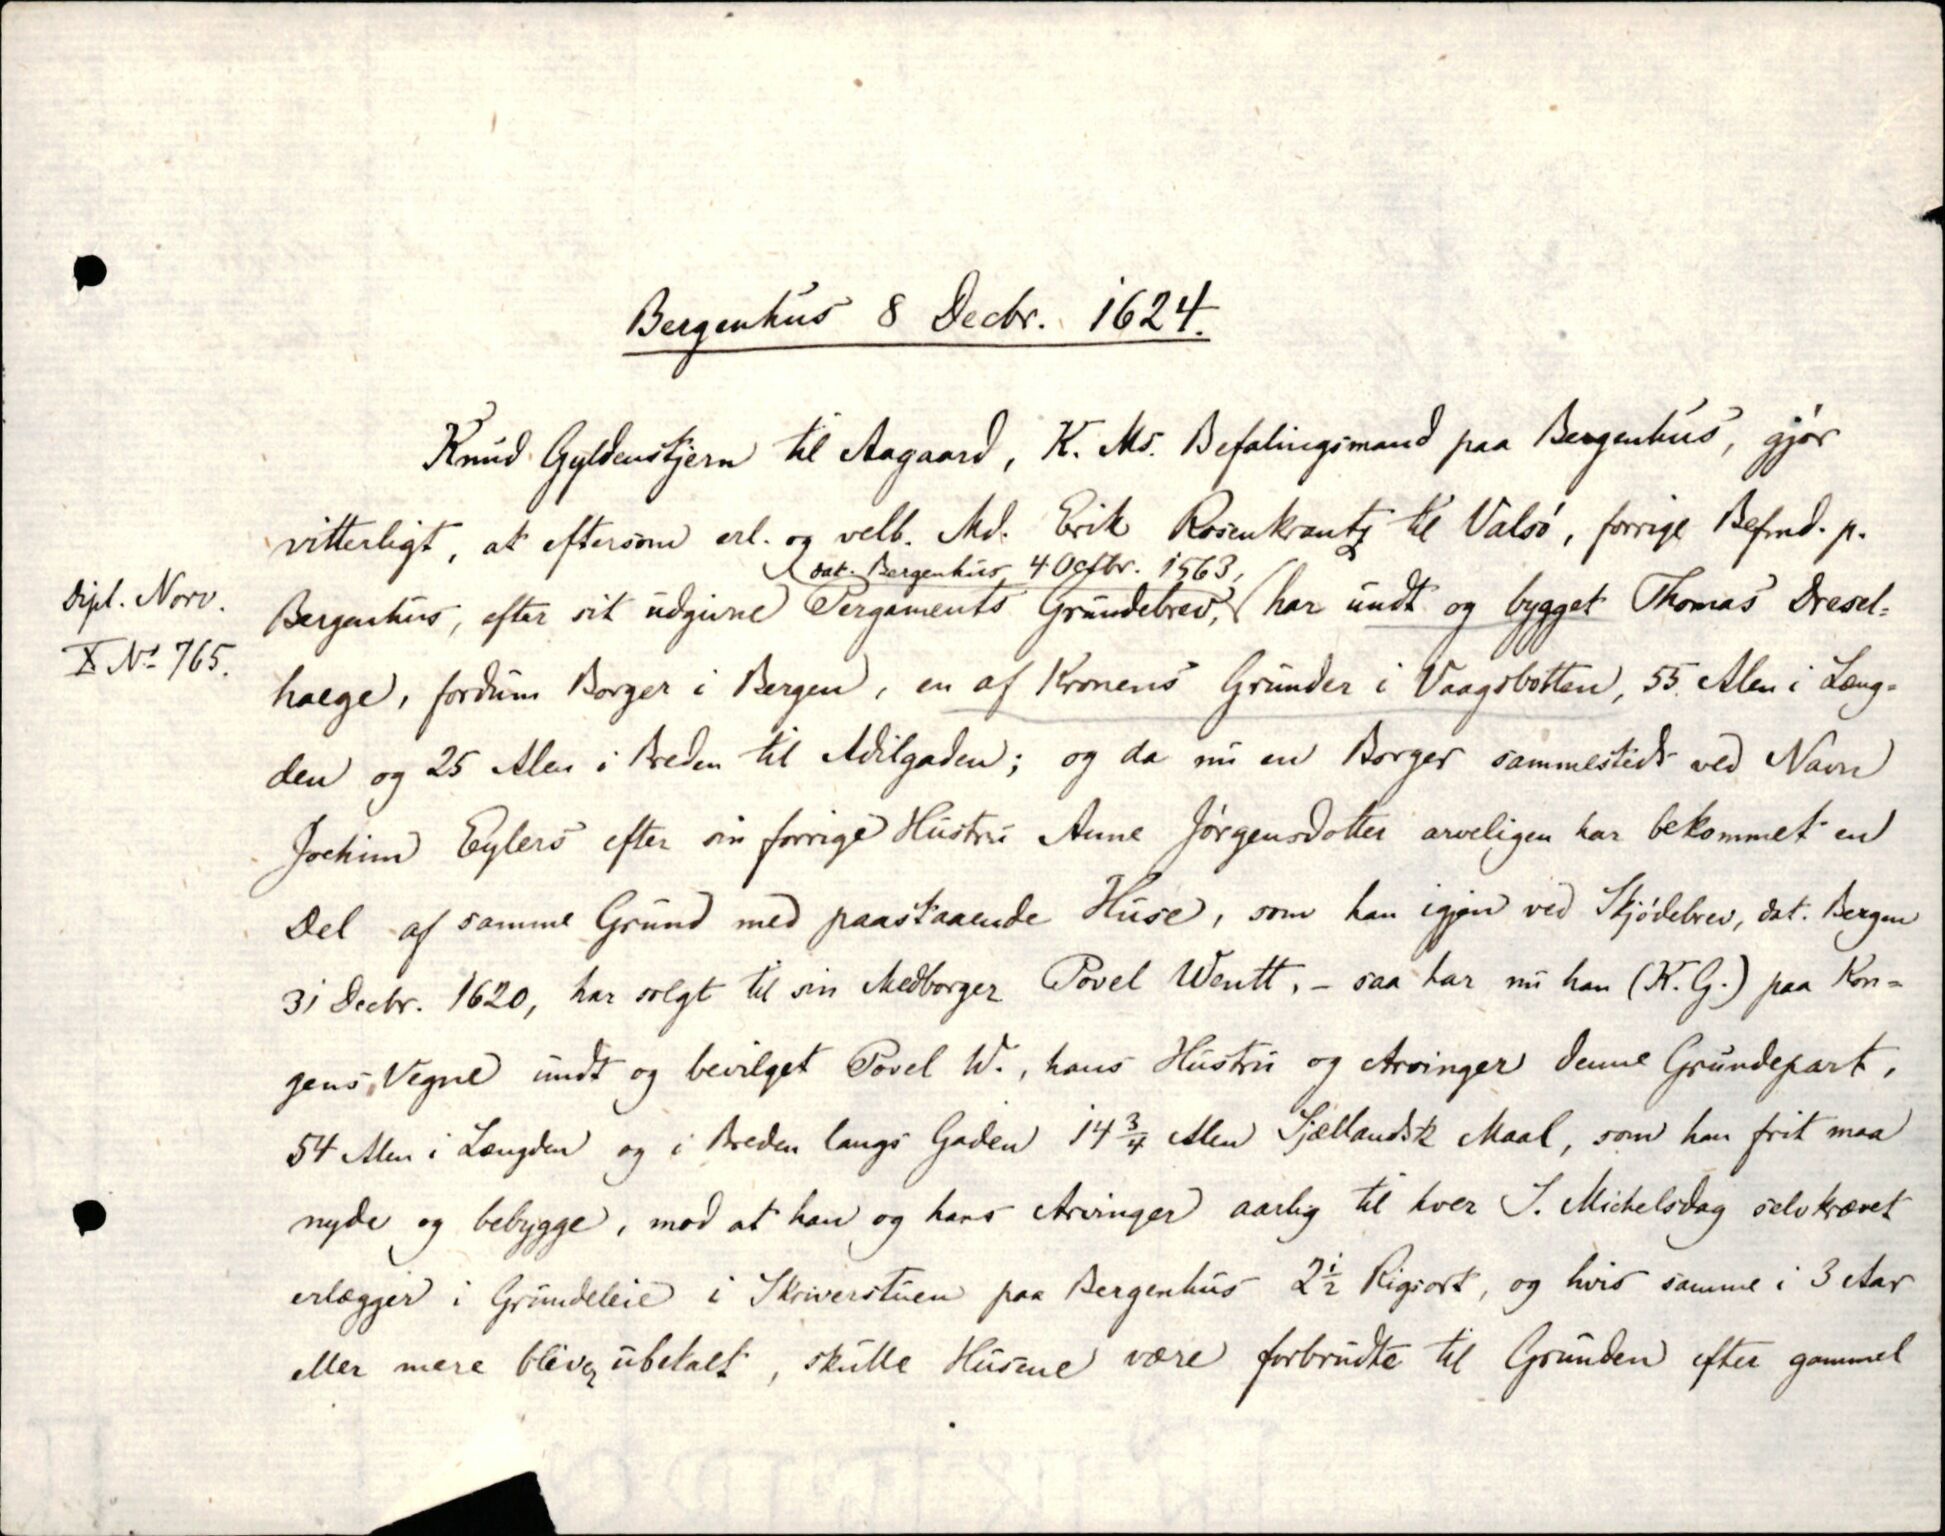 Bergenhus 8 Decbr. 1624.
Knud Gyldenstjern til Aagaard, K. Ms. Befalingsmand paa Bergenhus, gjør
vitterligt, at eftersom erl. og velb. Md. Erik Rosenkrantz til Valsø, forrige Befmd. p.
dat. Bergenhus 4 Octbr. 1563,
Dipl. Norv.
X No 765.
Bergenhus, efter sit udgivne Pergaments Grundebrev, har undt og bygget Thomas Dresel-
haege, fordum Borger i Bergen, en af Kronens Grunder i Vaagsbotten, 55 Alen i Læng-
den og 25 Alen i Breden til Adilgaden; og da nu en Borger sammesteds ved Navn
Jochim Eylers efter sin forrige Hustru Anne Jørgensdotter arveligen har bekommet en
Del af samme Grund med paastaaende Huse, som han igjen ved Skjødebrev, dat. Bergen
31 Decbr. 1620, har solgt til sin Medborger Povel Wentt, - saa har nu han (K. G.) paa Kon-
gens Vegne undt og bevilget Povel W., hans Hustru og Arvinger denne Grundepart,
54 Alen i Længden og i Breden langs Gaden 14 3/4 Alen Sjællandsk Maal, som han frit maa
nyde og bebygge, mod at han og hans Arvinger aarlig til hver S. Michelsdag selvkrævet
erlægger i Grundeleie i Skriverstuen paa Bergenhus 2 1/2 Rigsort, og hvis samme i 3 Aar
eller mere bliver ubetalt, skulle Husene være forbrudte til Grunden efter gammel